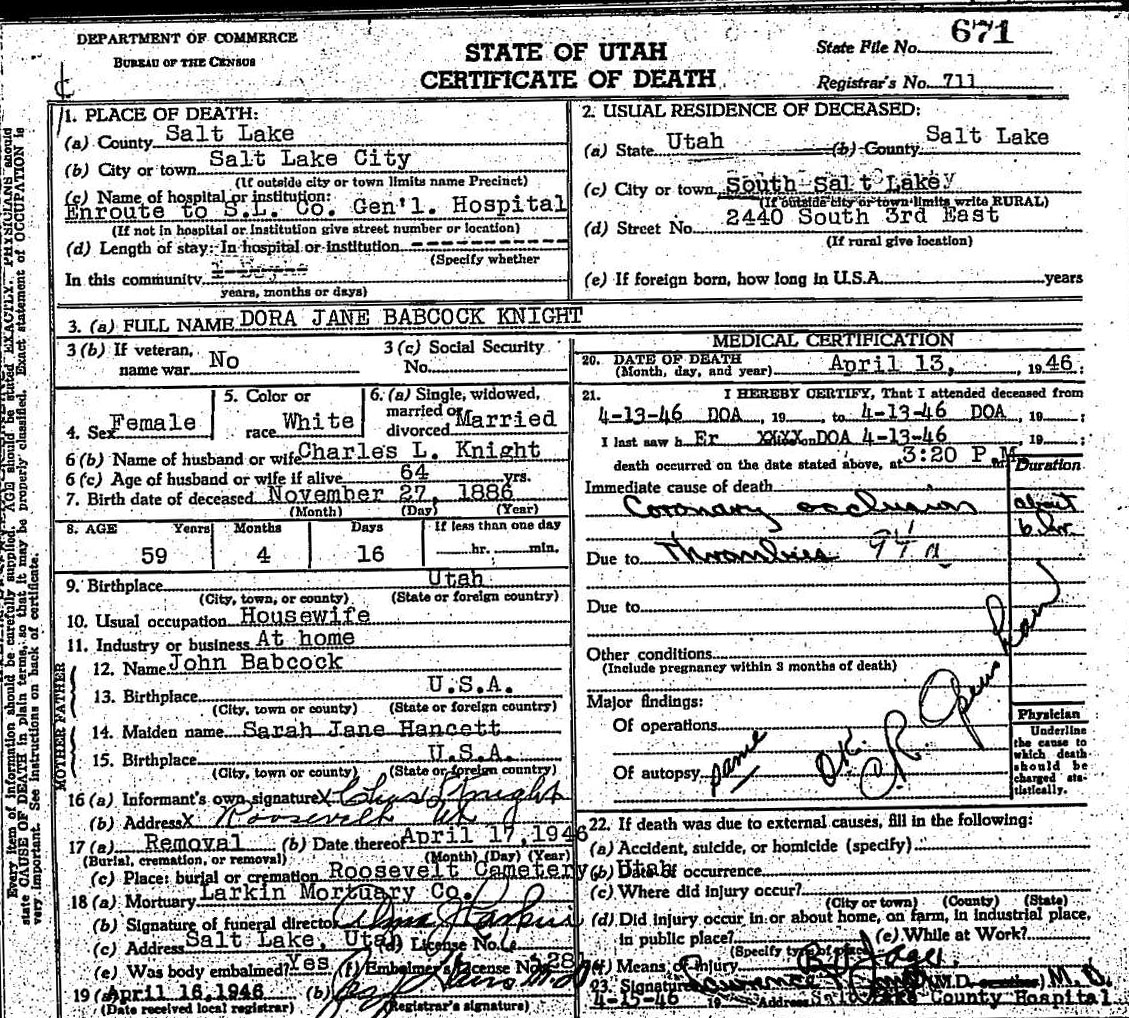 DEPARTMENT OF COMMERCE
BUREAU OF THE CENSUS
STATE OF UTAH
CERTIFICATE OF DEATH
State File No. 671
Registrar's No. 711
1. PLACE OF DEATH:
(a) County Salt Lake
(b) City or town Salt Lake City
(If outside city or town limits name Precinct)
(c) Name of hospital or institution:
Enroute to S.L. Co. Gen'l. Hospital
(If not in hospital or institution give street number or location)
(d) Length of stay: In hospital or institution
(Specify whether
In this community
years, months or days)
2. USUAL RESIDENCE OF DECEASED:
(a) State Utah (b) County Salt Lake
(c) City or town South Salt Lake
(If outside city or town limits write RURAL)
(d) Street No. 2440 South 3rd East
(If rural give location)
(e) If foreign born, how long in U.S.A. years
3. (a) FULL NAME DORA JANE BABCOCK KNIGHT
3 (b) If veteran, name war No
3 (c) Social Security No.
4. Sex Female
5. Color or race White
6. (a) Single, widowed, married or divorced Married
6 (b) Name of husband or wife Charles L. Knight
6 (c) Age of husband or wife if alive 64 yrs.
7. Birth date of deceased November 27, 1886
(Month) (Day) (Year)
8. AGE Years Months Days If less than one day
59 4 16 hr. min.
9. Birthplace Utah
(City, town, or county) (State or foreign country)
10. Usual occupation Housewife
11. Industry or business At home
FATHER
12. Name John Babcock
13. Birthplace U.S.A.
(City, town or county) (State or foreign country)
MOTHER
14. Maiden name Sarah Jane Hancett
15. Birthplace U.S.A.
(City, town or county) (State or foreign country)
16 (a) Informant's own signature X Chas L Knight
(b) Address X Roosevelt Ut
17 (a) Removal (b) Date thereof April 17, 1946
(Burial, cremation, or removal) (Month) (Day) (Year)
(c) Place: burial or cremation Roosevelt Cemetery, Utah
18 (a) Mortuary Larkin Mortuary Co.
(b) Signature of funeral director Alma J Larkin
(c) Address Salt Lake, Utah (d) License No.
(e) Was body embalmed? Yes (f) Embalmer's License No.
19 (a) April 16, 1946 (b)
(Date received local registrar) (Registrar's signature)
MEDICAL CERTIFICATION
20. DATE OF DEATH
(Month, day, and year) April 13, 1946
21. I HEREBY CERTIFY, That I attended deceased from
4-13-46 DOA, 19 to 4-13-46 DOA, 19 ;
I last saw h Er XXXX on DOA 4-13-46 , 19 ;
death occurred on the date stated above, at 3:20 P.M.
Duration
Immediate cause of death
Coronary occlusion about 6 hr.
Due to 94 a
Due to
Other conditions
(Include pregnancy within 3 months of death)
Major findings:
Of operations
Of autopsy same
O.K.
Physician
Underline the cause to which death should be charged statistically.
22. If death was due to external causes, fill in the following:
(a) Accident, suicide, or homicide (specify)
(b) Date of occurrence
(c) Where did injury occur?
(City or town) (County) (State)
(d) Did injury occur in or about home, on farm, in industrial place, in public place? (e) While at Work?
(Specify type of place)
(f) Means of injury
23. Signature M.D.
4-15-46 19 Address Salt Lake County Hospital
Every item of information should be carefully supplied. AGE should be stated EXACTLY. PHYSICIANS should
state CAUSE OF DEATH in plain terms, so that it may be properly classified. Exact statement of OCCUPATION is
very important. See instructions on back of certificate.